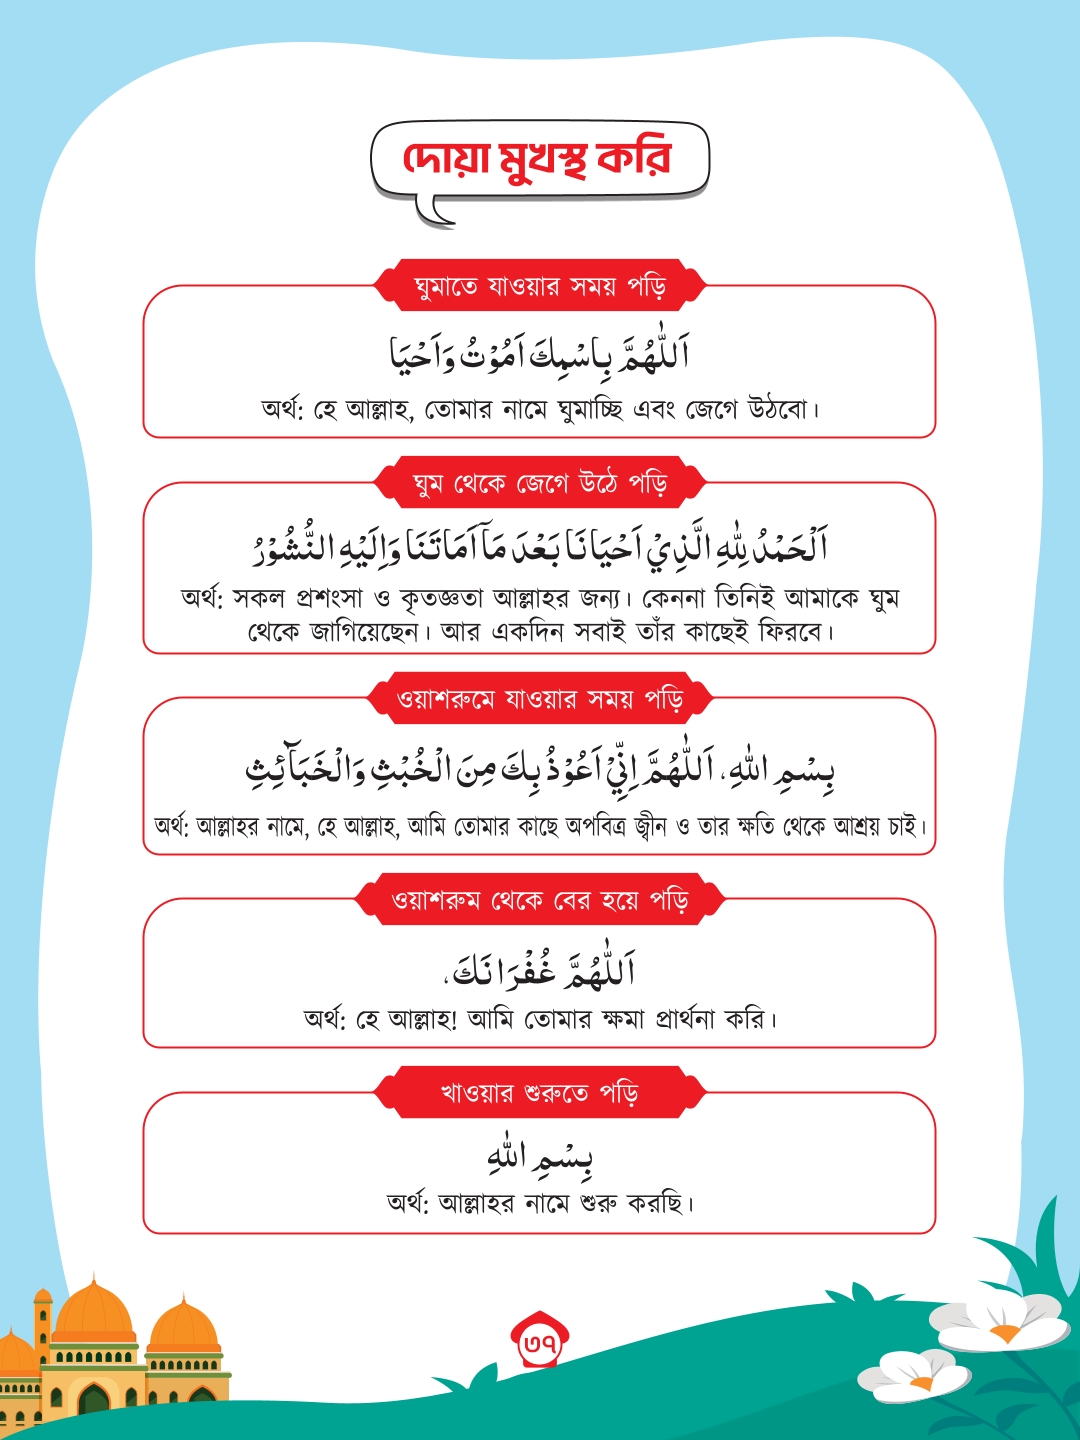 দোয়া মুখস্থ করি
ঘুমাতে যাওয়ার সময় পড়ি
اَللّٰهُمَّ بِاسْمِكَ اَمُوْتُ وَاَحْيَا
অর্থ: হে আল্লাহ, তোমার নামে ঘুমাচ্ছি এবং জেগে উঠবো।
ঘুম থেকে জেগে উঠে পড়ি
اَلْحَمْدُ لِلّٰهِ الَّذِيْ اَحْيَانَا بَعْدَ مَآ اَمَاتَنَا وَاِلَيْهِ النُّشُوْرُ
অর্থ: সকল প্রশংসা ও কৃতজ্ঞতা আল্লাহর জন্য। কেননা তিনিই আমাকে ঘুম
থেকে জাগিয়েছেন। আর একদিন সবাই তাঁর কাছেই ফিরবে।
ওয়াশরুমে যাওয়ার সময় পড়ি
بِسْمِ اللّٰهِ، اَللّٰهُمَّ اِنِّيْ اَعُوْذُ بِكَ مِنَ الْخُبْثِ وَالْخَبَآئِثِ
অর্থ: আল্লাহর নামে, হে আল্লাহ, আমি তোমার কাছে অপবিত্র জ্বীন ও তার ক্ষতি থেকে আশ্রয় চাই।
ওয়াশরুম থেকে বের হয়ে পড়ি
اَللّٰهُمَّ غُفْرَانَكَ،
অর্থ: হে আল্লাহ! আমি তোমার ক্ষমা প্রার্থনা করি।
খাওয়ার শুরুতে পড়ি
بِسْمِ اللّٰهِ
অর্থ: আল্লাহর নামে শুরু করছি।
৩৭